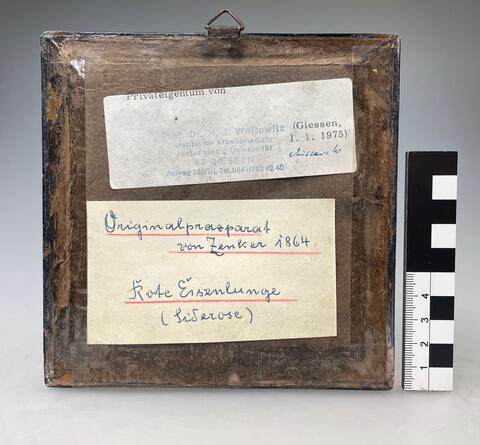 Privateigentum von
Prof. Dr. H. J. Woitowitz (Giessen,
Institut für Arbeitsmedizin 1. 1. 1975)
Justus Liebig-Universität
63 GIESSEN
Aulweg 129/III, Tel. 0641/702 42 40
Originalpraeparat
von Zenker 1864.
Rote Eisenlunge
(Siderose)
1 2 3 4